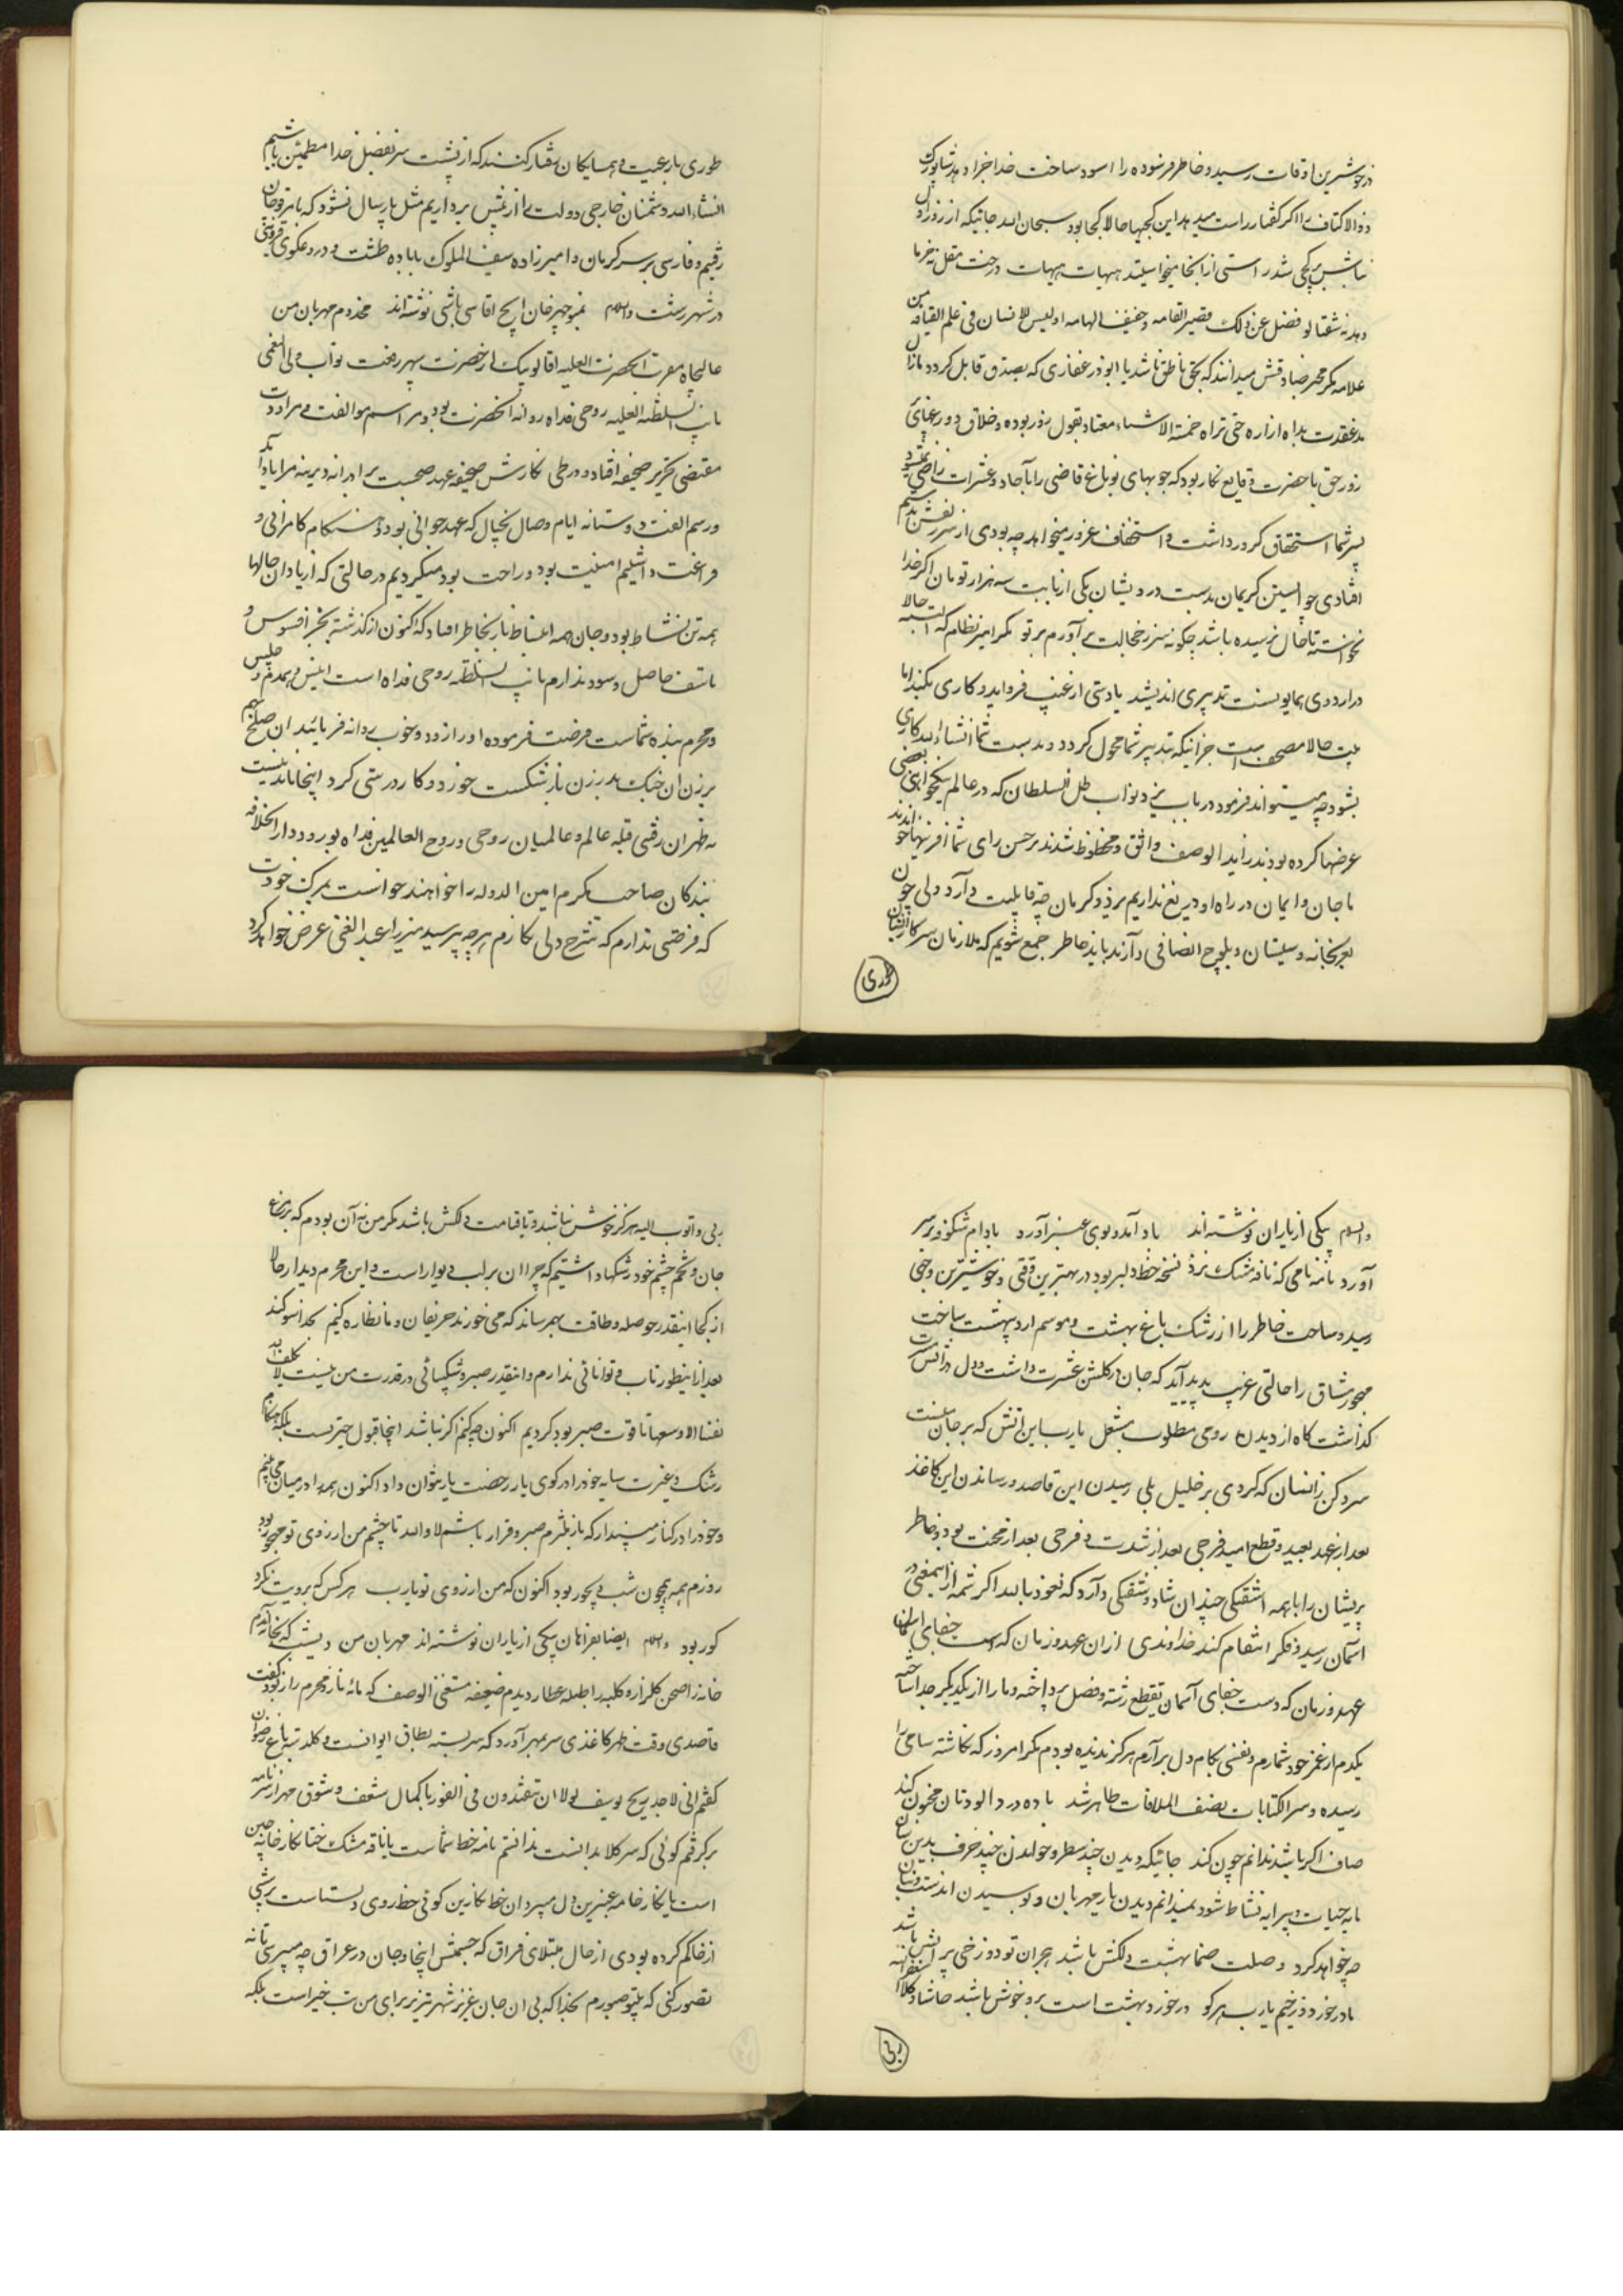 در خوشترین اوقات رسید و خاطر فرسوده را اسوده ساخت خدا جزا دهد شاپور
ذو الاکتاف را اگر گفتار راست میدید این کجیها حالا کجا بود سبحان الله جائیکه از روز ازل
بنابش بر کجی شد راستی از انجا میخواستید هیهات هیهات درخت مقل نه خرما
دهد نه شفتالو فضل عن ذلک قصیر القامه و خفیف الهامه او لیس للانسان فی علم القیافه
علامه مگر محمد صادقش میدانند که بحق ناطق باشد یا ابوذر غفاری که بصدق قابل گردد
حتی تراه خمسة الاشبار معتاد بقول زور بوده و خلاق
زور حق با حضرت وقایع نگار بود که جو بهای نو باغ قاضی را بآحاد و عشرات راضی نمیشود
پسر شما استحقاق کرور داشت و استخفاف غرور میخواهد چه بودی از سر زلفش بدستم
افتادی چو استین کریمان بدست درویشان یکی از بابت سه هزار تومان اگر خدا
نخواسته تا حال نرسیده باشد چگونه سر ز خجالت برآورم بر تو مگر امیر نظام که البته حالا
در اردوی همایونست تدبیری اندیشد یا دستی از غیب فروآید و کاری بکند اما
حالا مصحف است جز اینکه تدبیر شما محول گردد و بدست شما انشاء الله کاری
بشود چه میتواند فرمود در باب یزد نواب ظل السلطان که در عالم نیکخواهی بعضی
عرضها کرده بودند زاید الوصف واثق و محظوظ شدند بر حسن رای شما افرینها خواندند
تا جان و ایمان در راه او دریغ نداریم یزد و کرمان چه قابلیت دارد ولی چون
بعربخانه و سیستان و بلوچ اتصافی دارند باید خاطر جمع شویم که ملازمان سرکار ایشان
طوری
طوری با رعیت و همسایکان رفتار کنند که از پشت سر بفضل خدا مطمئن باشیم
انشاء الله دشمنان خارجی دولت را از پیش برداریم مثل پارسال نشود که ما بقوچان
رفتیم و فارسی بر سر کرمان و امیرزاده سیف الملوک با باده طشت و در دعکوی قزوینی
در شهر رشت والسلام بمنوچهر خان ایچ اقاسی باشی نوشته‌اند مخدوم مهربان من
عالیجاه مقرب الحضرت العلیه اقا لوبیک از حضرت سپهر رفعت نواب ولی النعمی
نایب السلطنه العلیه روحی فداه روانه انحضرت بود و مراسم موالفت و مراودت
مقتضی تحریر صحیفه افتاد و در طی نگارش صحیفه عهد صحبت برادرانه دیرینه مرا یاد آمد
و رسم الفت دوستانه ایام وصال بخیال که عهد جوانی بود و هنگام کامرانی و
فراغت داشتیم امنیت بود و راحت بود میکردیم در حالتی که از یاد ان حالها
همه تن نشاط بود و جان همه انبساط باز بخاطر افتاد که اکنون از گذشته بجز افسوس و
تاسف حاصل و سود ندارم نایب السلطنه روحی فداه است انیس و همدم و جلیس
و محرم بنده شماست مرخصت فرموده او را زود و خوب روانه فرمائید ان صلح هم
برزن ان جنگ بدرزن باز شکست خورد و کار درستی کرد اینجا ماند نیست
بطهران رفتی قبله عالم و عالمیان روحی و روح العالمین فداه بورود دار الخلافه
بندکان صاحب مکرم امین الدوله را خواهند خواست بمرگ خودت
که فرصتی ندارم که شرح دلی نگارم هر چه پرسید میرزا عبد الغنی عرض خواهد کرد
والسلام بیکی از یاران نوشته‌اند باد آمد و بوی عنبر آورد بادام شکوفه بر سر
آورد نامه نامی که نافه مشک برد نسخه خط دلبر بود در بهترین وقتی و خوشترین وجهی
رسید و ساحت خاطر را از رشک باغ بهشت و موسم اردیبهشت ساخت
مهجور مشتاق را حالتی غریب پدید آمد که جان در گلشن عشرت داشت و دل در آتش حسرت
گذاشت گاه از دیدن روحی مطلوب مشعل یارب این اتش که بر جان منست
سرد کن زانسان که کردی بر خلیل بلی رسیدن این قاصد و رساندن این کاغذ
بعد از عهد بعید و قطع امید فرجی بعد از شدت و فرحی بعد از محنت بود و خاطر
پریشان را با همه اشفتگی چندان شاد و شفتگی دارد که نعوذ بالله اگر شمه از اینمعنی در
آسمان رسید و فکر انتقام کند خداوندی از ان عهد و زمان که دست جفای
عهد و زمان که دست جفای آسمان بقطع رشته وصل پرداخته و ما را از یکدیگر جدا ساخته
یکدم از عمر خود شمارم و نفسی بکام دل برآرم هرگز ندیده بودم مگر امروز که نگاشته سامی
رسیده و سر الکتابات نصف الملاقات ظاهر شد باده درد الودتان مجنون کند
صاف اگر باشد ندانم چون کند جائیکه دیدن چند سطر و خواندن چند حرف بدین سان
مایه حیات و پیرایه نشاط شود نمیدانم دیدن یار مهربان و بوسیدن اندست و بنان
چه خواهد کرد وصلت صنما بهشت دلکش باشد هجران تو دوزخی پر آتش باشد
ما در خور دوزخیم یارب هر کو در خورد بهشت است برو خوش باشد حاشا و کلا استغفر الله
ربی
ربی و اتوب الیه هرگز خوش نباشد و تا قیامت دلکش باشد مگر من نه آن بودم که
جان و بچشم خود رشکها داشتیم که چرا ان بر لب دیوار است و این محرم دیدار حالا
از کجا اینقدر حوصله و طاقت بهم رساند که می خورند حریفان و ما نظاره کنیم بخدا سوگند
بعد از اینطور تاب و توانائی ندارم و اینقدر صبر و شکیبائی در قدرت من نیست لا یکلف الله
نفسا الا وسعها تا قوت صبر بود کردیم اکنون چه کنم اگر نباشد اینجا قول حیرتست بلکه هنگام
رشک و غیرت سایه خود را در کوی یار رخصت یار نتوان داد اکنون همه را در میان می بینم
و خود را در کنار مپندار که باز بلثرم صبر و قرار باشم لا والله تا چشم من از روی تو مهجور بود
روزم همه همچون شب دیجور بود اکنون که من از روی تو یارب هر کس که برویت نگرد
کور بود والسلام ایضا بعزایشان بیکی از یاران نوشته‌اند مهربان من دیشب که بخانه آمدم
خانه را صحن گلزار و کلبه را طبله عطار دیدم ضیفه مستغنی الوصف که مایه ناز و محرم راز بود گفت
قاصدی وقت ظهر کاغذی سر بمهر آورد که سربسته بطاق ایوانست و گلدسته باغ رضوان
گفتم انی لاجد ریح یوسف لولا ان تفندون فی الفور با کمال شعف و شوق مهر از سر نامه
برگرفتم گوئی که سر گلابدانست ندانستم نامه خط شماست یا نافه مشک ختا نگارخانه چین
است یا نگار خامه عنبرین دل میبرد ان خط نگارین گوئی خط روی دلستانست پرسشی
از خاکم کرده بودی از حال مبتلای فراق که جسمش اینجا و جان در عراق چه میپرسی تا نه
تصور کنی که بیتو صبورم بخدا که بی ان جان عزیز شهر تبریز برای من تب خیز است بلکه